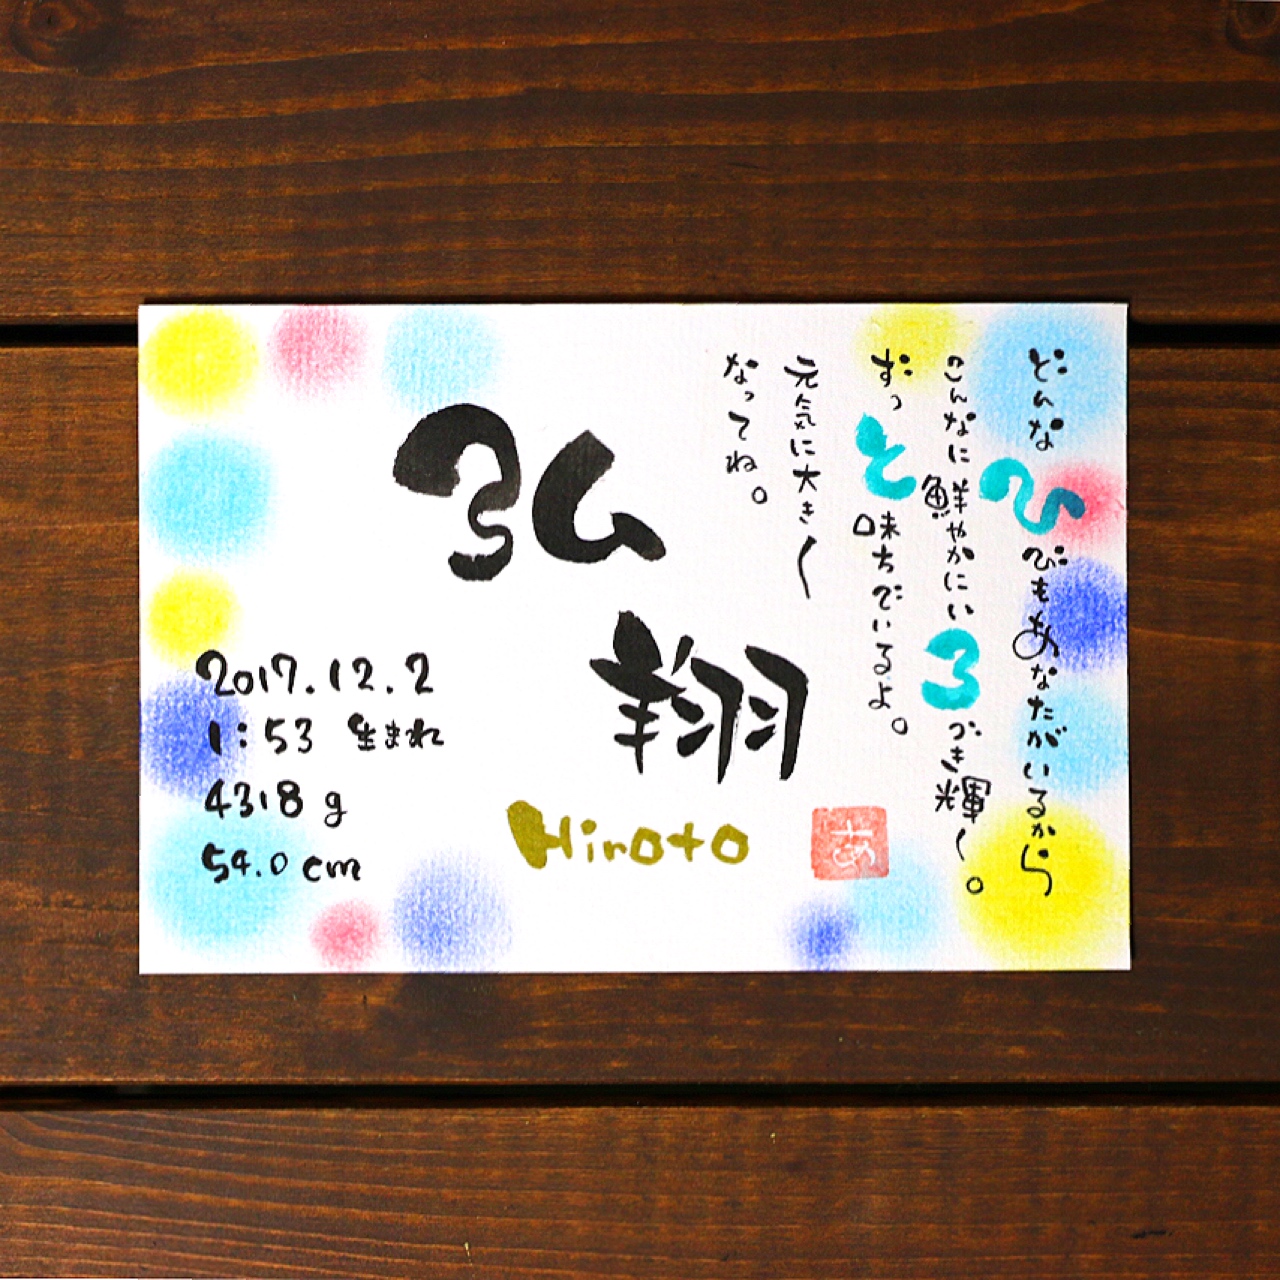 どんなひびもあなたがいるから
こんなに鮮やかにいろづき輝く。
ずっと味方でいるよ。
元気に大きく
なってね。
弘
翔
Hiroto
2017.12.2
1:53 生まれ
4318g
54.0cm
あ